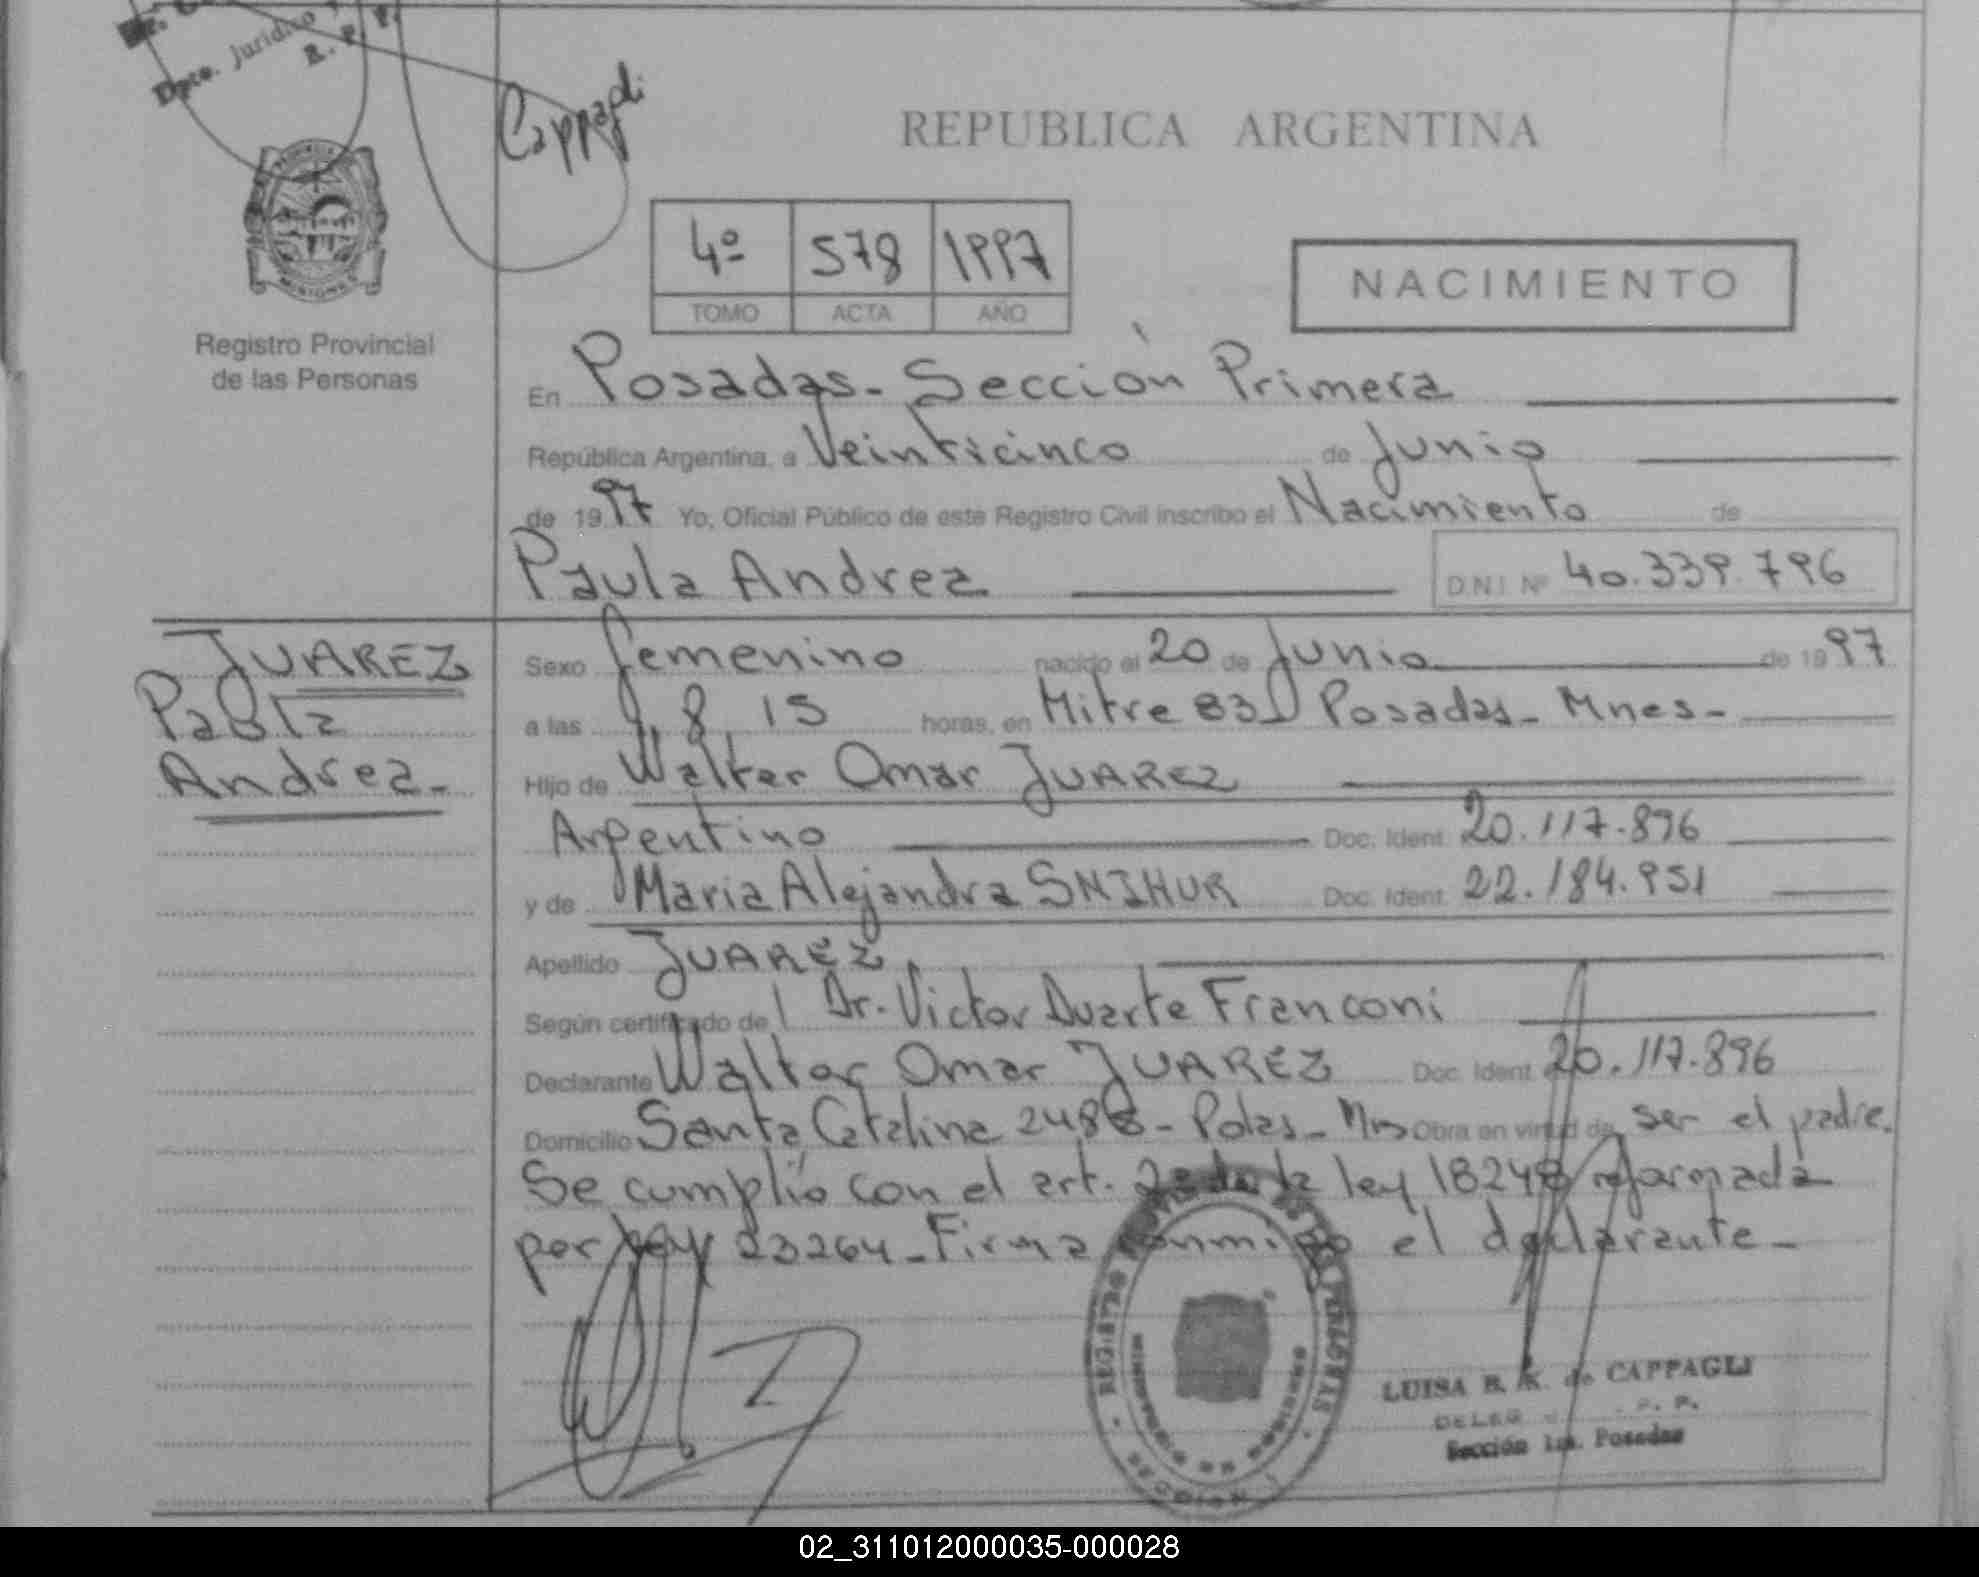 Dpto. Jurídico
R. P. P.
Cappagli
REPUBLICA ARGENTINA
4º 578 1997
TOMO ACTA AÑO
NACIMIENTO
PROVINCIA
MISIONES
Registro Provincial
de las Personas
En Posadas - Sección Primera
República Argentina, a Veinticinco de Junio
de 1997 Yo, Oficial Público de este Registro Civil inscribo el Nacimiento de
Paula Andrea D.N.I. Nº 40.339.796
JUAREZ
Paula
Andrea -
Sexo femenino nacido el 20 de Junio de 1997
a las 8 15 horas, en Mitre 83 Posadas - Mnes -
Hijo de Walter Omar JUAREZ
Argentino Doc. Ident. 20.117.896
y de Maria Alejandra SNIHUR Doc. Ident. 22.184.951
Apellido JUAREZ
Según certificado de Dr. Victor Duarte Franconi
Declarante Walter Omar JUAREZ Doc. Ident. 20.117.896
Domicilio Santa Catalina 2488 - Pdas - Mns Obra en virtud de ser el padre.
Se cumplió con el art. 2 de la ley 18248 reformada
por ley 23264 - Firma conmigo el declarante -
REGISTRO PROVINCIAL DE LAS PERSONAS
SECCION
LUISA B. K. de CAPPAGLI
Sección 1ra. Posadas
02_311012000035-000028